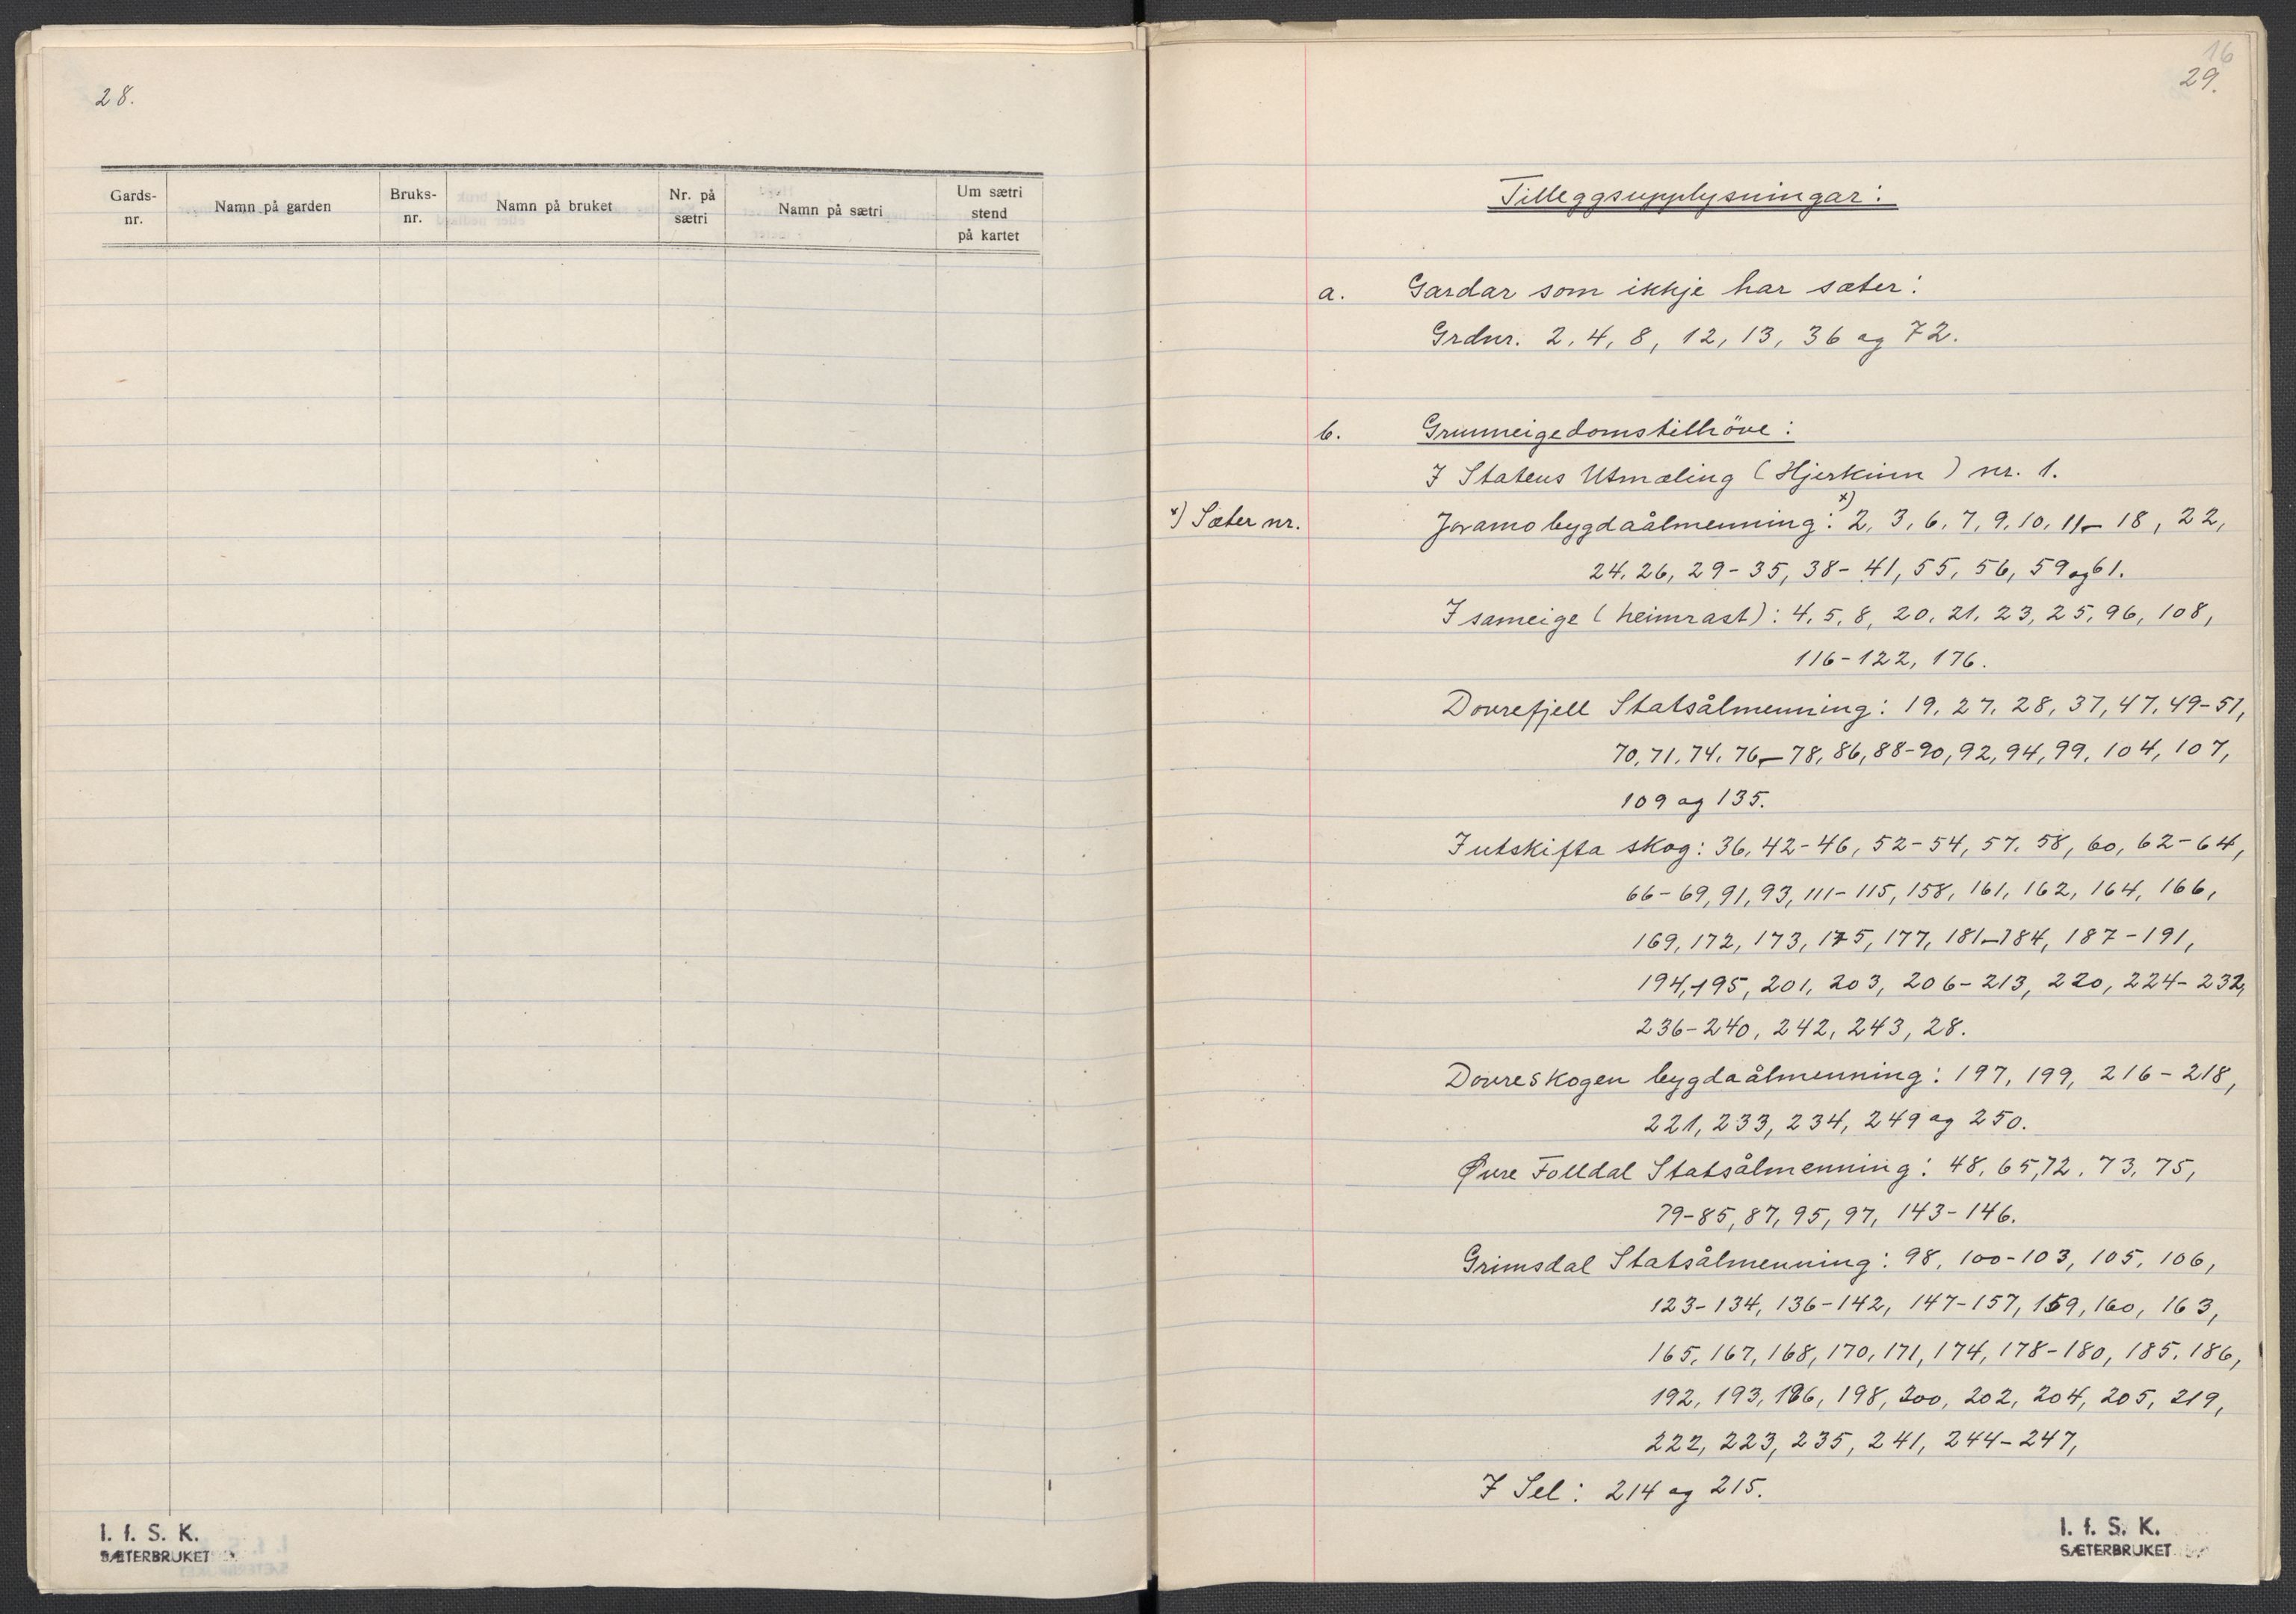 28.
Gards-nr.
Namn på garden
Bruks-nr.
Namn på bruket
Nr. på sætri
Namn på sætri
Um sætri stend på kartet
I. f. S. K.
SÆTERBRUKET
16
29.
Tilleggsupplysningar:
a. Gardar som ikkje har sæter:
Grdnr. 2, 4, 8, 12, 13, 36 og 72.
b. Grunneigedomstilhöve:
I Statens Utmæling (Hjerkinn) nr. 1.
x) Sæter nr.
Joramo bygdaålmenning: x) 2, 3, 6, 7, 9, 10, 11-18, 22,
24, 26, 29-35, 38-41, 55, 56, 59 og 61.
I sameige (heimrast): 4, 5, 8, 20, 21, 23, 25, 96, 108,
116-122, 176.
Dovrefjell Statsålmenning: 19, 27, 28, 37, 47, 49-51,
70, 71, 74, 76-78, 86, 88-90, 92, 94, 99, 104, 107,
109 og 135.
I utskifta skog: 36, 42-46, 52-54, 57, 58, 60, 62-64,
66-69, 91, 93, 111-115, 158, 161, 162, 164, 166,
169, 172, 173, 175, 177, 181-184, 187-191,
194, 195, 201, 203, 206-213, 220, 224-232,
236-240, 242, 243, 28.
Dovreskogen bygdaålmenning: 197, 199, 216-218,
221, 233, 234, 249 og 250.
Øvre Folldal Statsålmenning: 48, 65, 72, 73, 75,
79-85, 87, 95, 97, 143-146.
Grimsdal Statsålmenning: 98, 100-103, 105, 106,
123-134, 136-142, 147-157, 159, 160, 163,
165, 167, 168, 170, 171, 174, 178-180, 185, 186,
192, 193, 196, 198, 200, 202, 204, 205, 219,
222, 223, 235, 241, 244-247,
I Sel: 214 og 215.
I. f. S. K.
SÆTERBRUKET